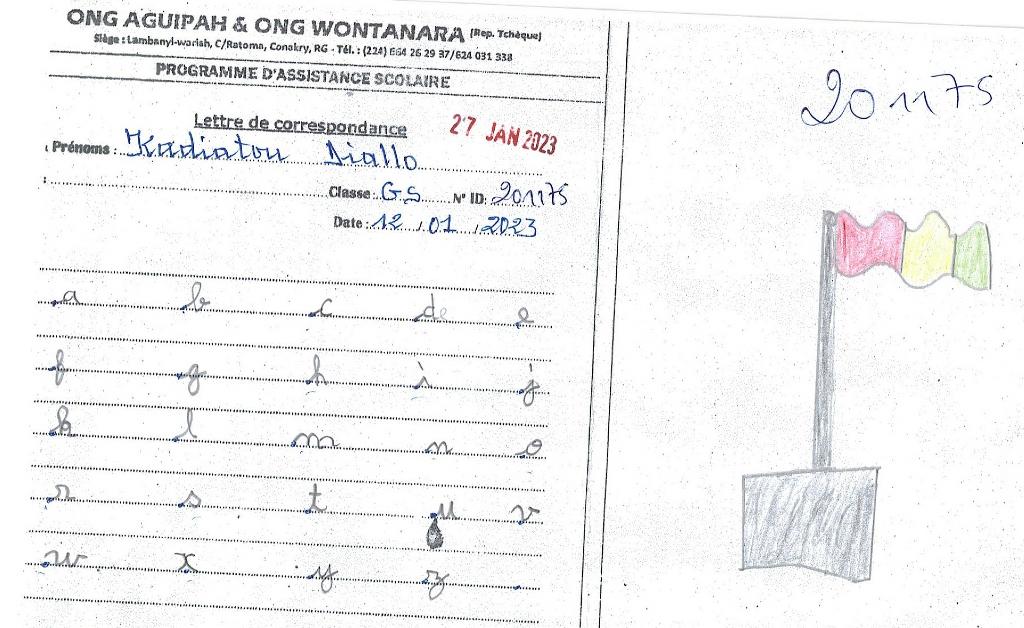 ONG AGUIPAH & ONG WONTANARA (Rep. Tchèque)
Siège : Lambanyi-wariah, C/Ratoma, Conakry, RG - Tél. : (224) 664 26 29 37/624 031 338
PROGRAMME D'ASSISTANCE SCOLAIRE
Lettre de correspondance
27 JAN 2023
Prénoms : Kadiatou Diallo
Classe: GS N° ID: 201175
Date: 12/01/2023
a b c d e
f g h i j
k l m n o
r s t u v
w x y z
201175